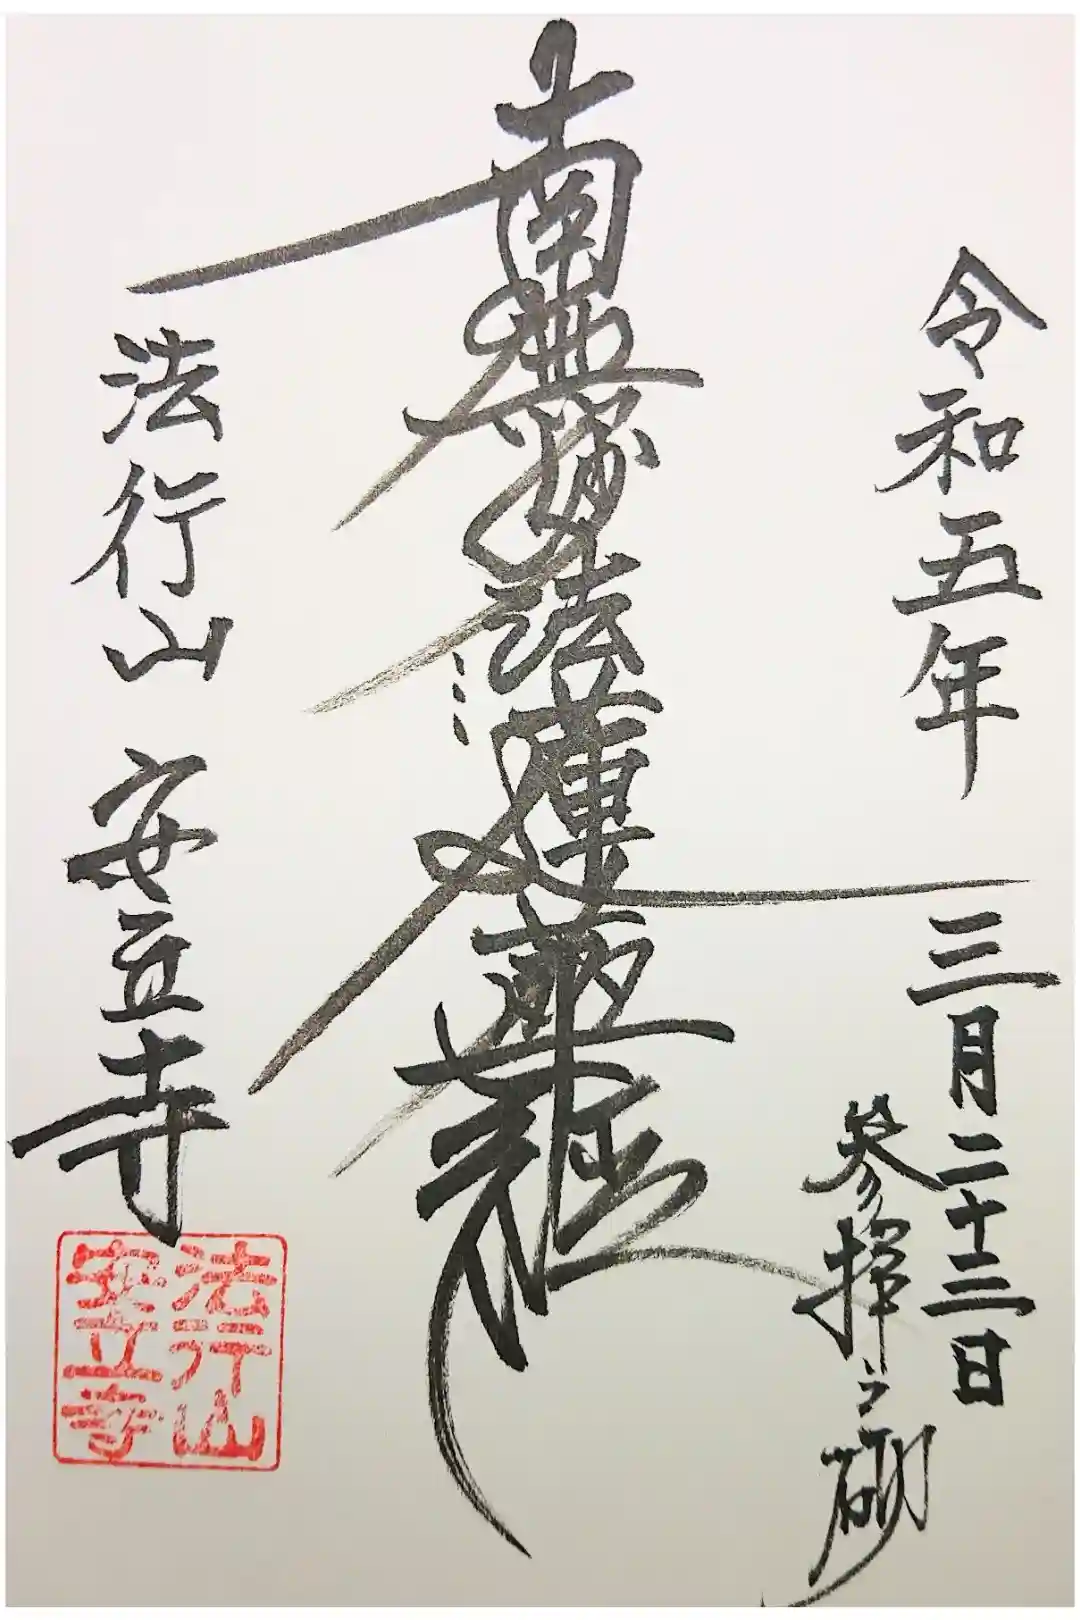 令和五年三月二十三日
参拝之砌
南無妙法蓮華経
法行山 安立寺
法行山
安立寺